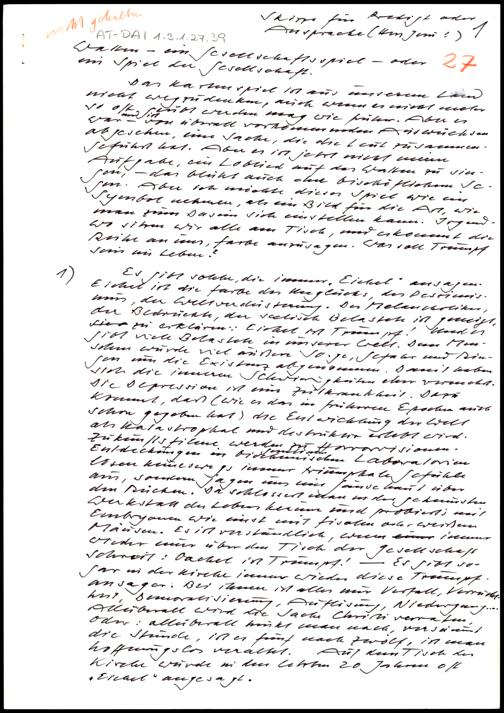 nicht gehalten
AT-DAI 1.3.1.27.39
Skizze für Predigt oder
Ansprache (Km Juni!) 1
27
Watten – ein Gesellschaftsspiel – oder
ein Spiel der Gesellschaft.
Das Kartenspiel ist aus unserem Land
nicht wegzudenken, auch wenn es nicht mehr
so oft geübt werden mag wie früher. Aber es
war und ist – von überall vorkommenden Auswüchsen
abgesehen, eine Sache, die die Leut zusammen-
geführt hat. Aber es ist jetzt nicht meine
Aufgabe, ein Loblied auf das Watten zu sin-
gen, – das bleibt auch ohne bischöflichen Se-
gen. Aber ich möchte dieses Spiel wie ein
Symbol nehmen, als ein Bild für die Art, wie
man zum Dasein sich einstellen kann. Irgend-
wo sitzen wir alle am Tisch, und es kommt die
Reihe an uns, Farbe anzusagen. Was soll Trumpf
sein im Leben?
1) Es gibt solche, die immer „Eichel“ ansagen.
Eichel ist die Farbe des Unglücks, des Pessimis-
mus, der Weltverdüsterung. Der Melancholiker,
der Bedrückte, der seelisch Belastete ist geneigt,
zu erklären: Eichel ist Trumpf! Und es
gibt viel Belastete in unserer Welt. Dem Men-
schen wurde viel äußere Sorge, Gefahr und Rin-
gen um die Existenz abgenommen. Damit haben
sich die inneren Schwierigkeiten eher vermehrt.
Die Depression ist eine Zeitkrankheit. Dazu
kommt, daß (wie es das in früheren Epochen auch
schon gegeben hat) die Entwicklung der Welt
als katastrophal und destruktiv erlebt wird.
Zukunftsfilme werden zu Horrorvisionen.
Entdeckungen in biochemischen Laboratorien
lösen keineswegs immer triumphale Gefühle
aus, sondern jagen uns eine Gänsehaut über
den Rücken. Da schlossert man in der geheimsten
Werkstatt des Lebens herum und probiert mit
Embryonen wie sonst mit Fischen oder weißen
Mäusen. Es ist verständlich, wenn immer
wieder einer über den Tisch der Gesellschaft
schreit: Eachel ist Trumpf! – Es gibt so-
gar in der Kirche immer wieder diese Trumpf-
ansager. Bei ihnen ist alles nur Verfall,
Demoralisierung, Auflösung, Niedergang...
Allüberall wird die Sache Christi verraten,
oder: allüberall hinkt man nach, versäumt
die Stunde, ist es fünf nach zwölf, ist man
hoffnungslos veraltet. Auf dem Tisch der
Kirche würde in den letzten 20 Jahren oft
„Eichel“ angesagt.